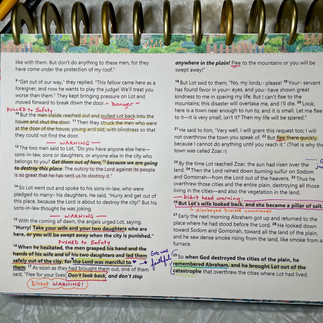 like with them. But don't do anything to these men, for they
have come under the protection of my roof."
⁹ "Get out of our way," they replied. "This fellow came here as a
foreigner, and now he wants to play the judge! We'll treat you
worse than them." They kept bringing pressure on Lot and
moved forward to break down the door. - Danger -
PULLED to Safety
¹⁰ But the men inside reached out and pulled Lot back into the
house and shut the door. ¹¹ Then they struck the men who were
at the door of the house, young and old, with blindness so that
they could not find the door.
— WARNING —
¹² The two men said to Lot, "Do you have anyone else here—
sons-in-law, sons or daughters, or anyone else in the city who
belongs to you? Get them out of here, ¹³ because we are going
to destroy this place. The outcry to the LORD against its people
is so great that he has sent us to destroy it."
¹⁴ So Lot went out and spoke to his sons-in-law, who were
pledged to marry his daughters. He said, "Hurry and get out of
this place, because the LORD is about to destroy the city!" But his
sons-in-law thought he was joking.
— WARNING —
¹⁵ With the coming of dawn, the angels urged Lot, saying,
"Hurry! Take your wife and your two daughters who are
here, or you will be swept away when the city is punished."
PUSHED to Safety
¹⁶ When he hesitated, the men grasped his hand and the
hands of his wife and of his two daughters and led them
safely out of the city, for the LORD was merciful to
them. ¹⁷ As soon as they had brought them out, one of them
said, "Flee for your lives! Don't look back, and don't stop
Direct WARNING!
God was faithful
anywhere in the plain! Flee to the mountains or you will be
swept away!"
¹⁸ But Lot said to them, "No, my lords, please! ¹⁹ Your servant
has found favor in your eyes, and you have shown great
kindness to me in sparing my life. But I can't flee to the
mountains; this disaster will overtake me, and I'll die. ²⁰ Look,
here is a town near enough to run to, and it is small. Let me flee
to it—it is very small, isn't it? Then my life will be spared."
²¹ He said to him, "Very well, I will grant this request too; I will
not overthrow the town you speak of. ²² But flee there quickly,
because I cannot do anything until you reach it." (That is why the
town was called Zoar.)
²³ By the time Lot reached Zoar, the sun had risen over the
land. ²⁴ Then the LORD rained down burning sulfur on Sodom
and Gomorrah—from the LORD out of the heavens. ²⁵ Thus he
overthrew those cities and the entire plain, destroying all those
living in the cities—and also the vegetation in the land.
Didn't heed warning
²⁶ But Lot's wife looked back, and she became a pillar of salt.
²⁷ Early the next morning Abraham got up and returned to the
place where he had stood before the LORD. ²⁸ He looked down
toward Sodom and Gomorrah, toward all the land of the plain,
and he saw dense smoke rising from the land, like smoke from a
furnace.
²⁹ So when God destroyed the cities of the plain, he
remembered Abraham, and he brought Lot out of the
catastrophe that overthrew the cities where Lot had lived.